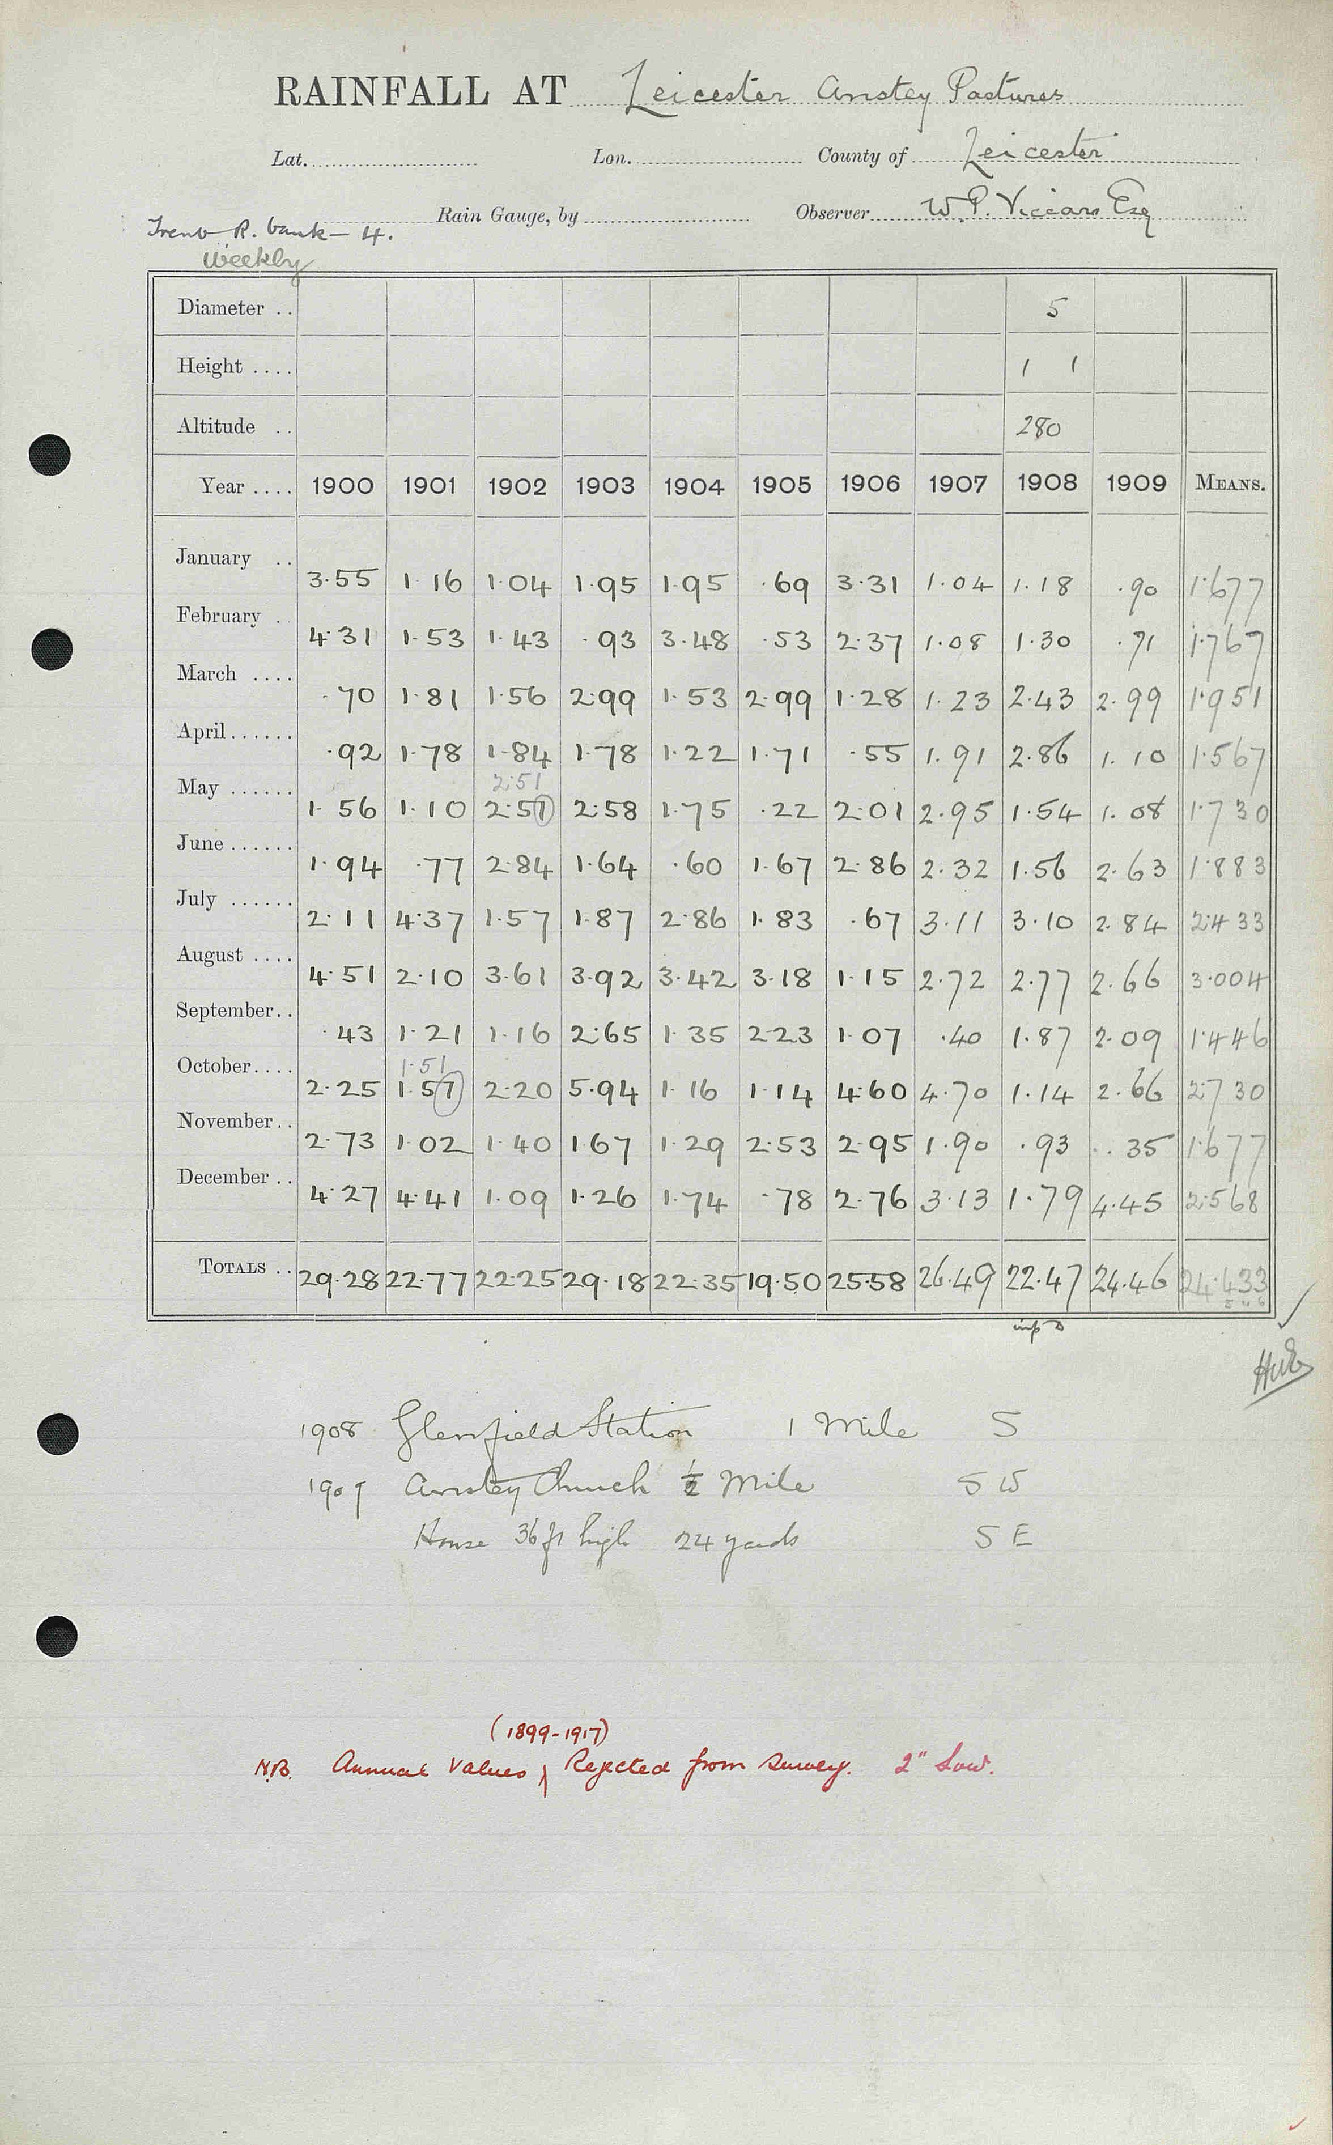 RAINFALL AT Leicester Anstey Pastures
Lat. Lon. County of Leicester
Rain Gauge, by Observer W. P. Viccars Esq
Trent R. bank - 4.
Weekly
Diameter .. 5
Height .... 1 1
Altitude .. 280
Year .... 1900 1901 1902 1903 1904 1905 1906 1907 1908 1909 MEANS.
January .. 3.55 1.16 1.04 1.95 1.95 .69 3.31 1.04 1.18 .90 1.677
February . 4.31 1.53 1.43 .93 3.48 .53 2.37 1.08 1.30 .71 1.767
March .... .70 1.81 1.56 2.99 1.53 2.99 1.28 1.23 2.43 2.99 1.951
April...... .92 1.78 1.84 1.78 1.22 1.71 .55 1.91 2.86 1.10 1.567
2.51
May ...... 1.56 1.10 2.57 2.58 1.75 .22 2.01 2.95 1.54 1.08 1.730
June...... 1.94 .77 2.84 1.64 .60 1.67 2.86 2.32 1.56 2.63 1.883
July ...... 2.11 4.37 1.57 1.87 2.86 1.83 .67 3.11 3.10 2.84 2.433
August .... 4.51 2.10 3.61 3.92 3.42 3.18 1.15 2.72 2.77 2.66 3.004
September.. .43 1.21 1.16 2.65 1.35 2.23 1.07 .40 1.87 2.09 1.446
1.51
October.... 2.25 1.57 2.20 5.94 1.16 1.14 4.60 4.70 1.14 2.66 2.730
November.. 2.73 1.02 1.40 1.67 1.29 2.53 2.95 1.90 .93 .35 1.677
December .. 4.27 4.41 1.09 1.26 1.74 .78 2.76 3.13 1.79 4.45 2.568
TOTALS .. 29.28 22.77 22.25 29.18 22.35 19.50 25.58 26.49 22.47 24.46 24.433
1908 Glenfield Station 1 Mile S
1909 Anstey Church ½ Mile SW
House 36 ft high 24 yards SE
(1899-1917)
N.B. Annual Values Rejected from Survey. 2" Low.